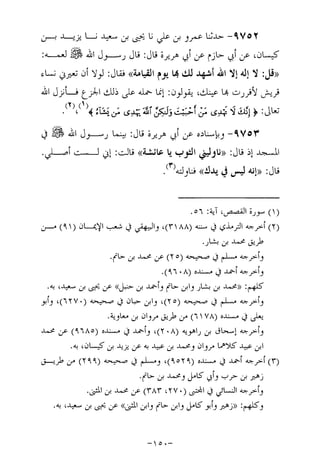 ٩٧٥٢- حدثنا عمرو بن علي نا يحيى بن سعيد نا يزيد بن
كيسان، عن أبي حازم عن أبي هريرة قال: قال رسول الله ﷺ لعمه:
«قل: لا إله إلا الله أشهد لك بها يوم القيامة» فقال: لولا أن تعيرني نساء
قريش لأقررت بها عينك، يقولون: إنما حمله على ذلك الجزع فأنزل الله
تعالى: ﴿ إِنَّكَ لَا تَهْدِى مَنْ أَحْبَبْتَ وَلَـٰكِنَّ ٱللَّهَ يَهْدِى مَن يَشَآءُ ﴾(١)(٢).
٩٧٥٣- وبإسناده عن أبي هريرة قال: بينما رسول الله ﷺ في
المسجد إذ قال: «ناوليني الثوب يا عائشة» قالت: إني لست أصلي.
قال: «إنه ليس في يدك» فناولته(٣).
(١) سورة القصص، آية: ٥٦.
(٢) أخرجه الترمذي في سننه (٣١٨٨)، والبيهقي في شعب الإيمان (٩١) من
طريق محمد بن بشار.
وأخرجه مسلم في صحيحه (٢٥) عن محمد بن حاتم.
وأخرجه أحمد في مسنده (٩٦٠٨).
كلهم: «محمد بن بشار وابن حاتم وأحمد بن حنبل» عن يحيى بن سعيد، به.
وأخرجه مسلم في صحيحه (٢٥)، وابن حبان في صحيحه (٦٢٧٠)، وأبو
يعلى في مسنده (٦١٧٨) من طريق مروان بن معاوية.
وأخرجه إسحاق بن راهويه (٢٠٨)، وأحمد في مسنده (٩٦٨٥) عن محمد
ابن عبيد كلاهما مروان ومحمد بن عبيد به عن يزيد بن كيسان، به.
(٣) أخرجه أحمد في مسنده (٩٥٢٩)، ومسلم في صحيحه (٢٩٩) من طريق
زهير بن حرب وأبي كامل ومحمد بن حاتم.
وأخرجه النسائي في المجتبى (٢٧٠، ٣٨٣) عن محمد بن المثنى.
وكلهم: «زهير وأبو كامل وابن حاتم وابن المثنى» عن يحيى بن سعيد، به.
-١٥٠-